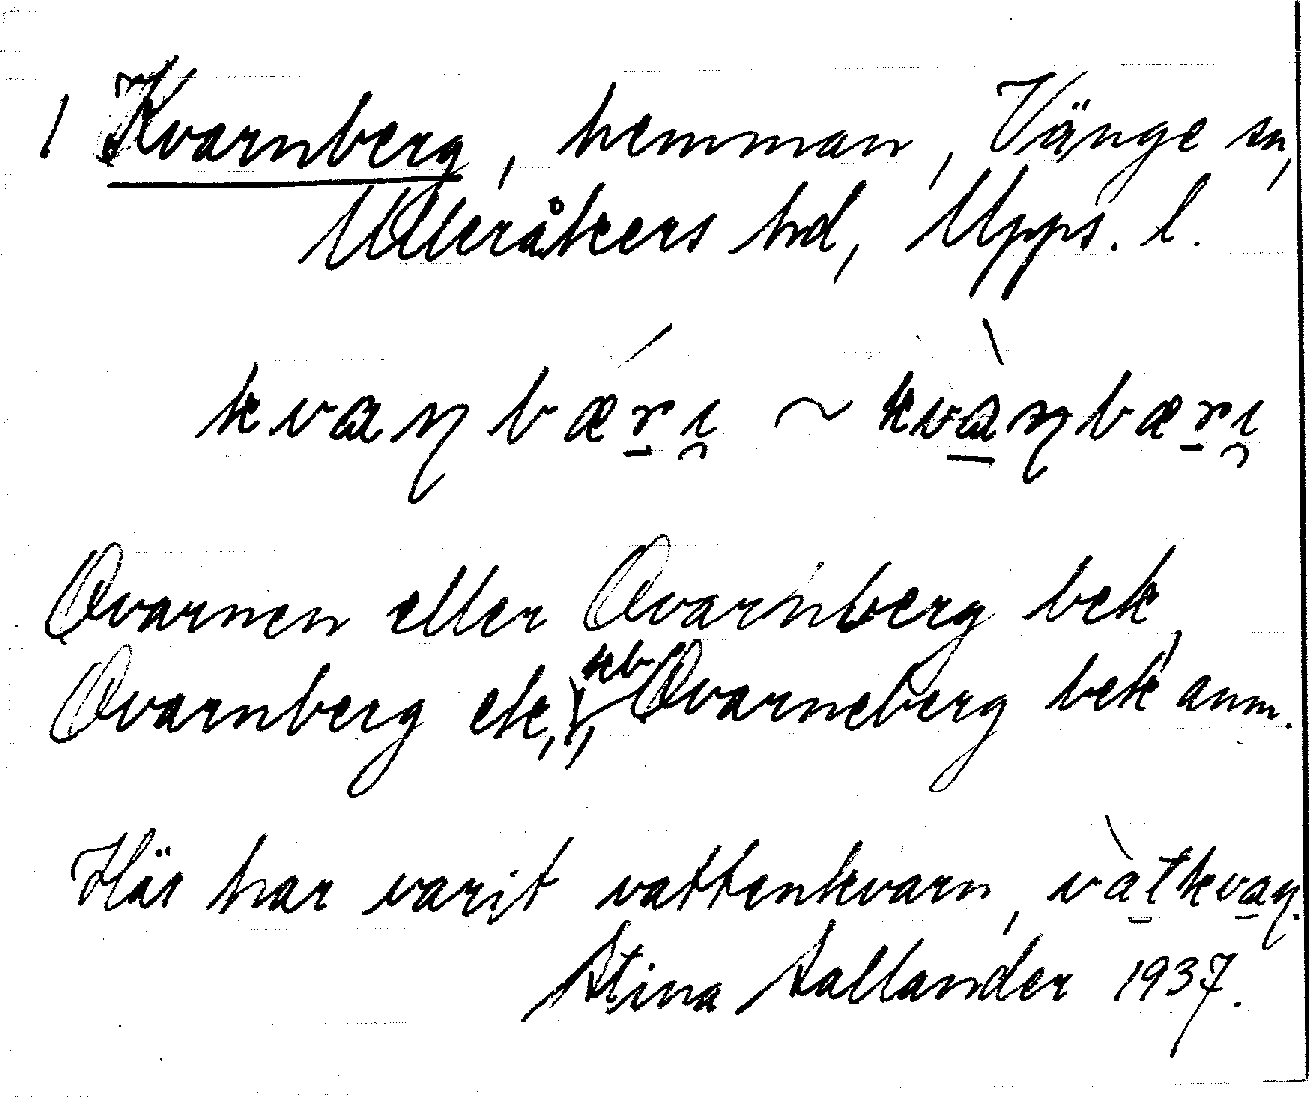 1 Kvarnberg, hemman, Vänge sn,
Ulleråkers hd, Upps. l.
kvaɳbǽrı ~ kvàɳbærı
Qvarnen eller Qvarnberg bek,
Qvarnberg ek, Qvarneberg bek anm.
Här har varit vattenkvarn, vàtkvaɳ.
Stina Sallander 1937.